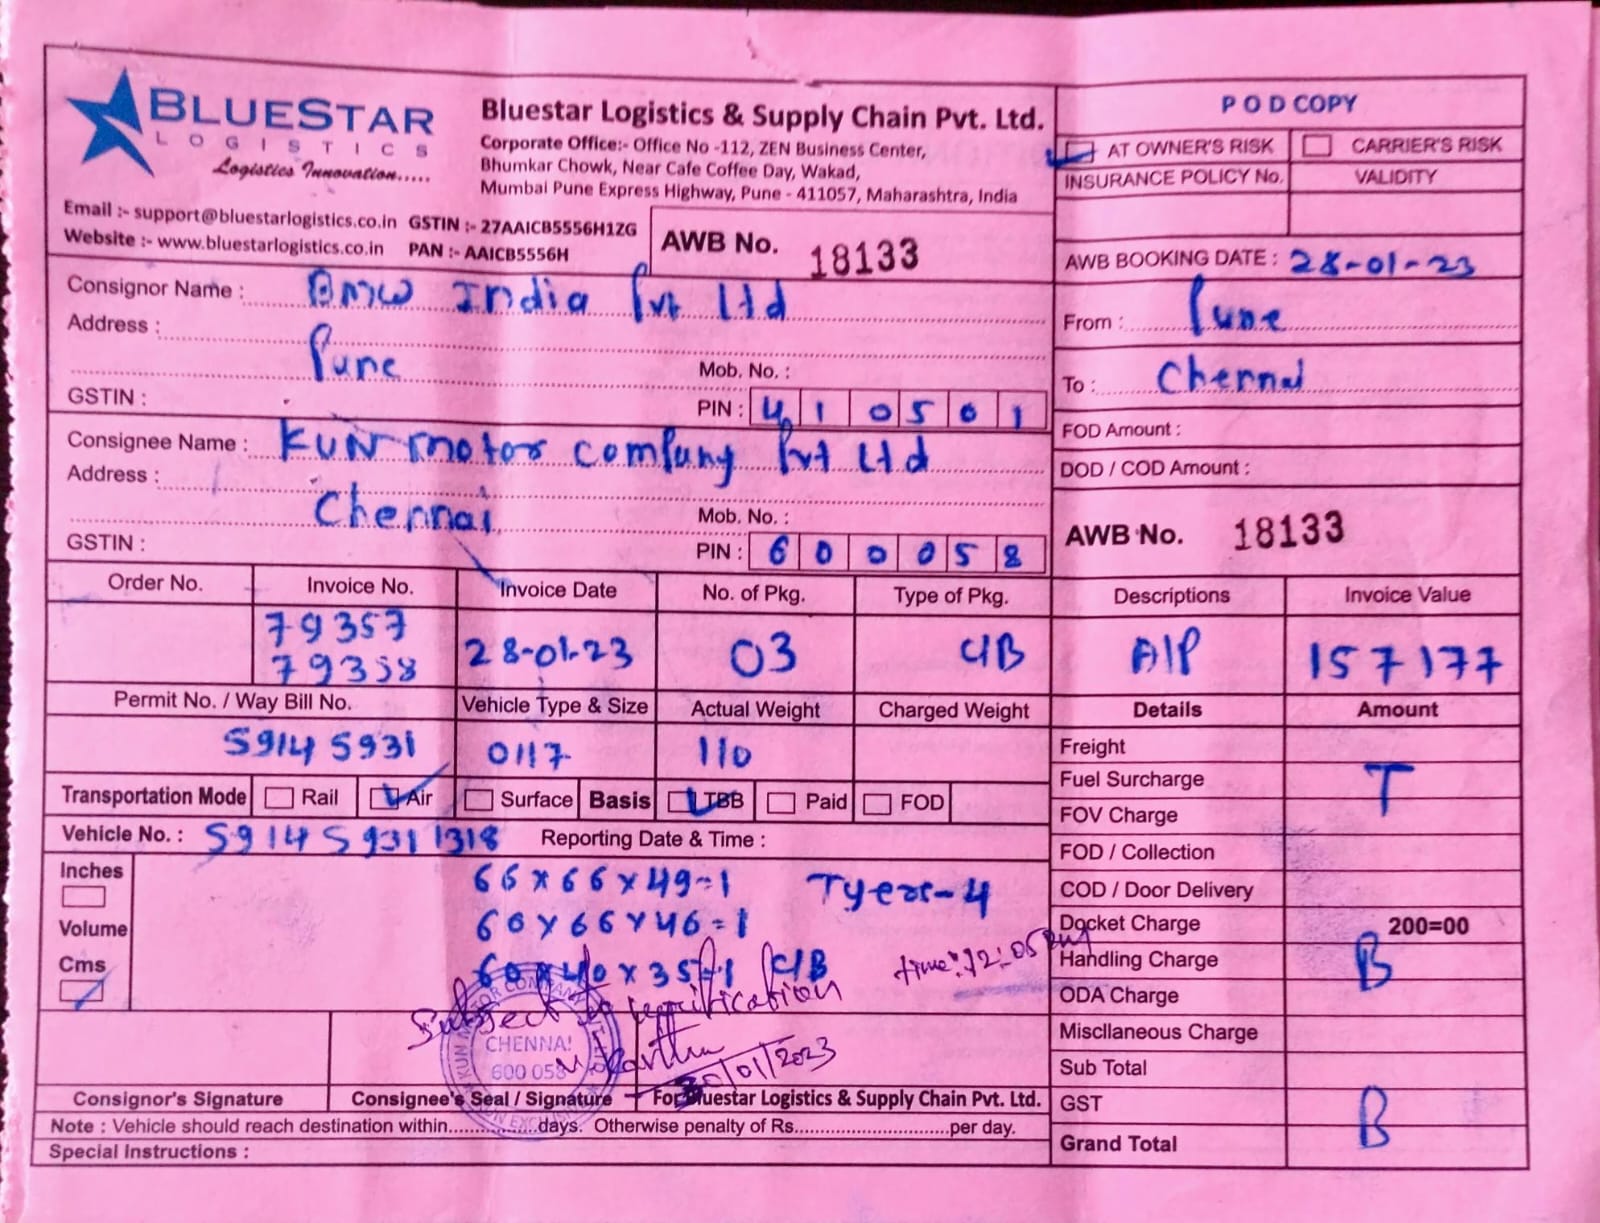 BLUESTAR
LOGISTICS
Logistics Innovation.....
Bluestar Logistics & Supply Chain Pvt. Ltd.
Corporate Office:- Office No -112, ZEN Business Center,
Bhumkar Chowk, Near Cafe Coffee Day, Wakad,
Mumbai Pune Express Highway, Pune - 411057, Maharashtra, India
Email :- support@bluestarlogistics.co.in GSTIN :- 27AAICB5556H1ZG
Website :- www.bluestarlogistics.co.in PAN :- AAICB5556H
AWB No. 18133
P O D COPY
AT OWNER'S RISK CARRIER'S RISK
INSURANCE POLICY No. VALIDITY
AWB BOOKING DATE : 28-01-23
From : Pune
To : Chennai
FOD Amount :
DOD / COD Amount :
AWB No. 18133
Consignor Name : BMW India Pvt Ltd
Address :
Pune Mob. No. :
GSTIN : PIN : 410501
Consignee Name : KUN motor Compuny Pvt Ltd
Address :
Chennai Mob. No. :
GSTIN : PIN : 600058
Order No. Invoice No. Invoice Date No. of Pkg. Type of Pkg. Descriptions Invoice Value
79357
79358 28-01-23 03 C/B A/P 157177
Permit No. / Way Bill No. Vehicle Type & Size Actual Weight Charged Weight Details Amount
59145931 0117 110
Transportation Mode Rail Air Surface Basis TBB Paid FOD
Vehicle No. : 59145931 1318 Reporting Date & Time :
Inches
Volume
Cms
66 x 66 x 49=1 Tyers-4
60 x 66 x 46=1
60 x 40 x 35=1 C/B
time: 12:05 pm
Subject to verification
30/01/2023
CHENNAI
600 058
Freight
Fuel Surcharge T
FOV Charge
FOD / Collection
COD / Door Delivery
Docket Charge 200=00
Handling Charge B
ODA Charge
Miscllaneous Charge
Sub Total
GST B
Grand Total
Consignor's Signature Consignee's Seal / Signature For Bluestar Logistics & Supply Chain Pvt. Ltd.
Note : Vehicle should reach destination within...............days. Otherwise penalty of Rs..........................per day.
Special Instructions :